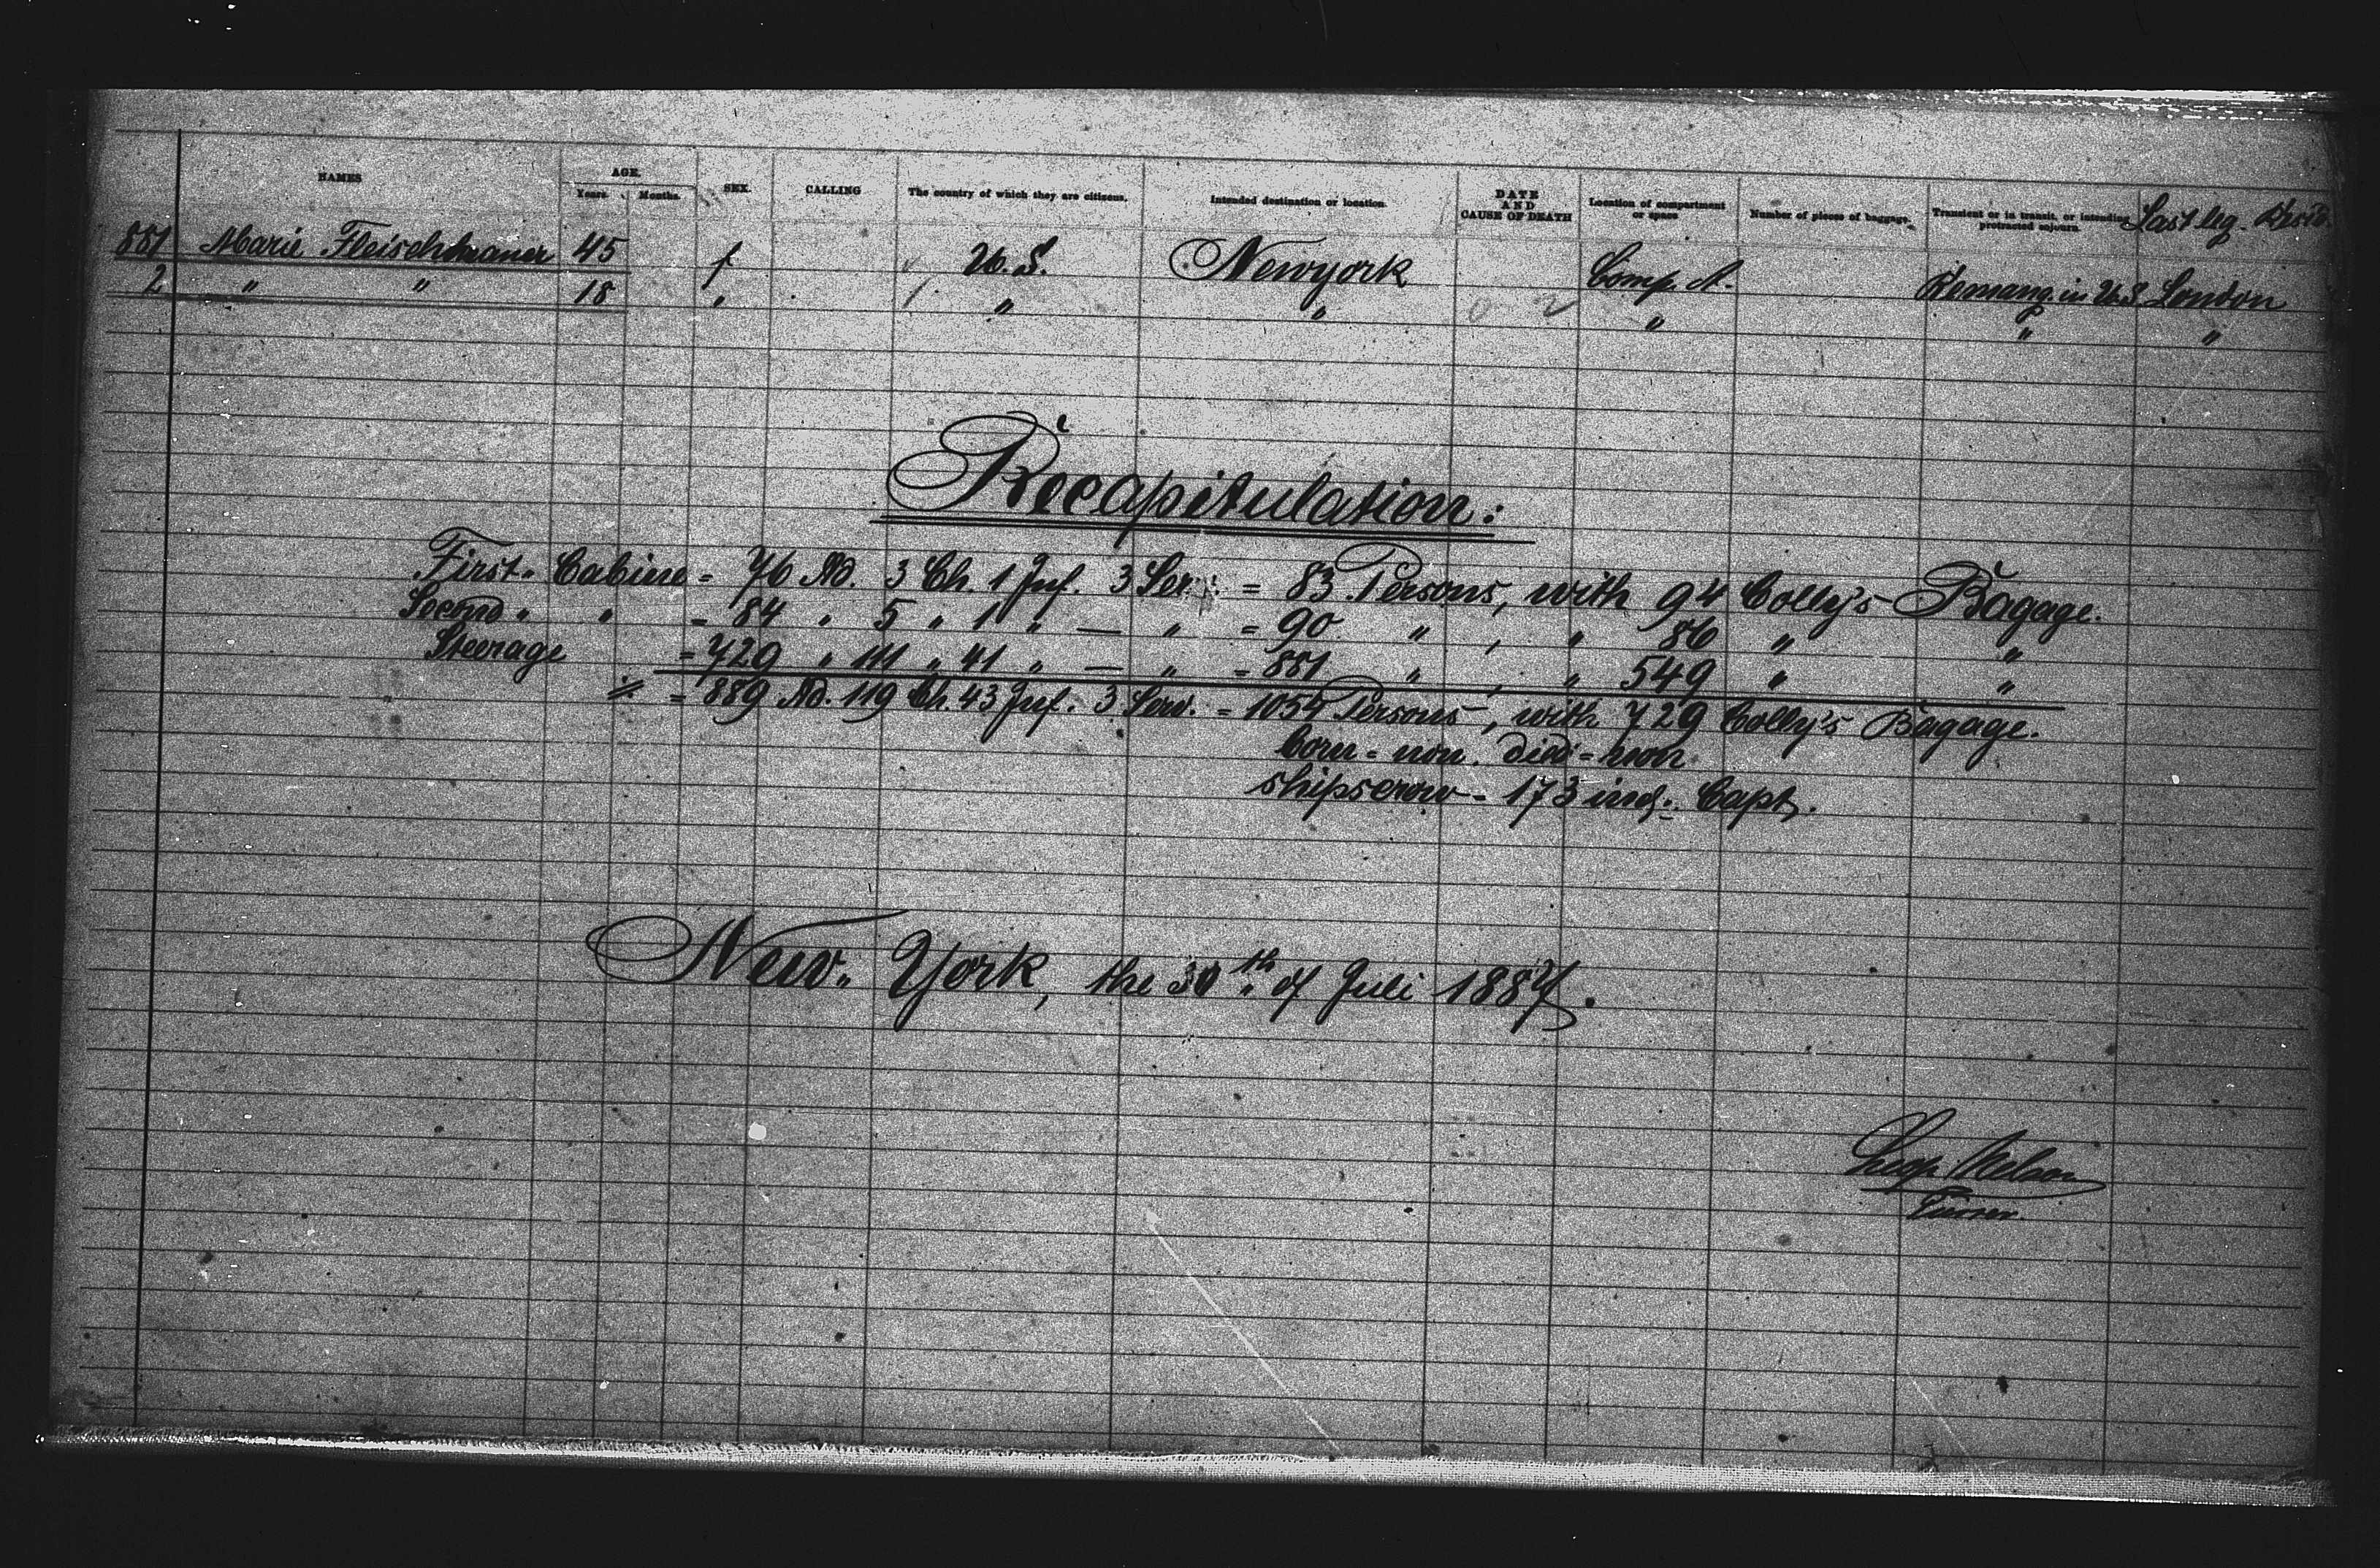 NAMES AGE. SEX. CALLING The country of which they are citizens. Intended destination or location. DATE AND CAUSE OF DEATH Location of compartment or space Number of pieces of baggage. Transient or in transit, or intending protracted sojourn. Last leg. Resid.
Years. Months.
881 Marie Fleischhauer 45 f U. S. Newyork Comp. A. in U.S. London
2 " " 18 " " " 0 2 " " "
Recapitulation:
First - Cabine = 76 Ad. 3 Ch. 1 Inf. 3 Ser. = 83 Persons, with 94 Colly's Bagage.
Second " " = 84 " 5 " 1 " — " = 90 " , " 86 " "
Steerage = 729 " 111 " 41 " — " = 881 " , " 549 " "
= 889 Ad. 119 Ch. 43 Inf. 3 Serv. = 1054 Persons, with 729 Colly's Bagage.
born = non. died = non.
shipscrew = 173 incl: Capt.
New-York, the 30th of Juli 1887.
Purser.